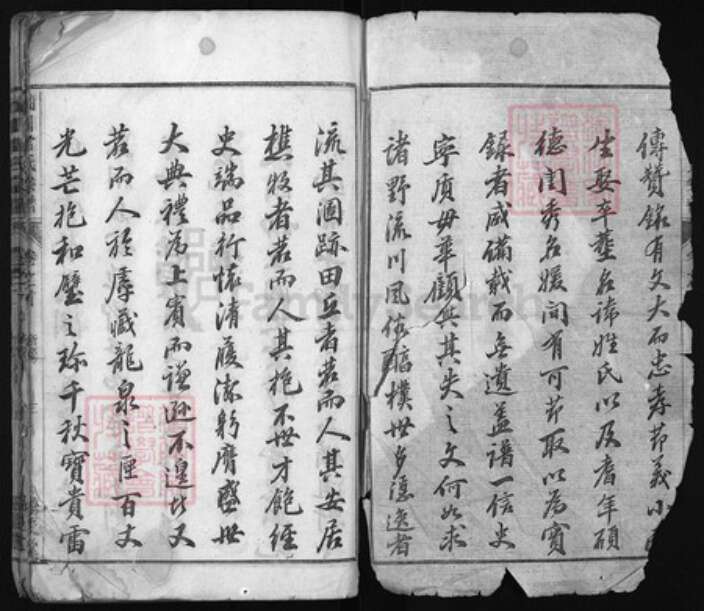 傳贊錄有文大而忠孝節義小
生娶卒塟名諱姓氏以及耆年碩
德閨秀名媛間有可節取以為寶
錄者咸備載而無遺蓋譜一信史
寧質毋華顧與其失之文何如求
諸野流川風俗醇樸世多隱逸者
流其涸跡田丘者若而人其安居
樵牧者若而人其抱不世才飽經
史端品行懷清履潔躬膺盛世
大典禮為上賓而謙遜不遑此又
若而人於虖藏龍泉之匣百丈
光芒抱和璧之珍千秋寶貴雷
FamilySearch